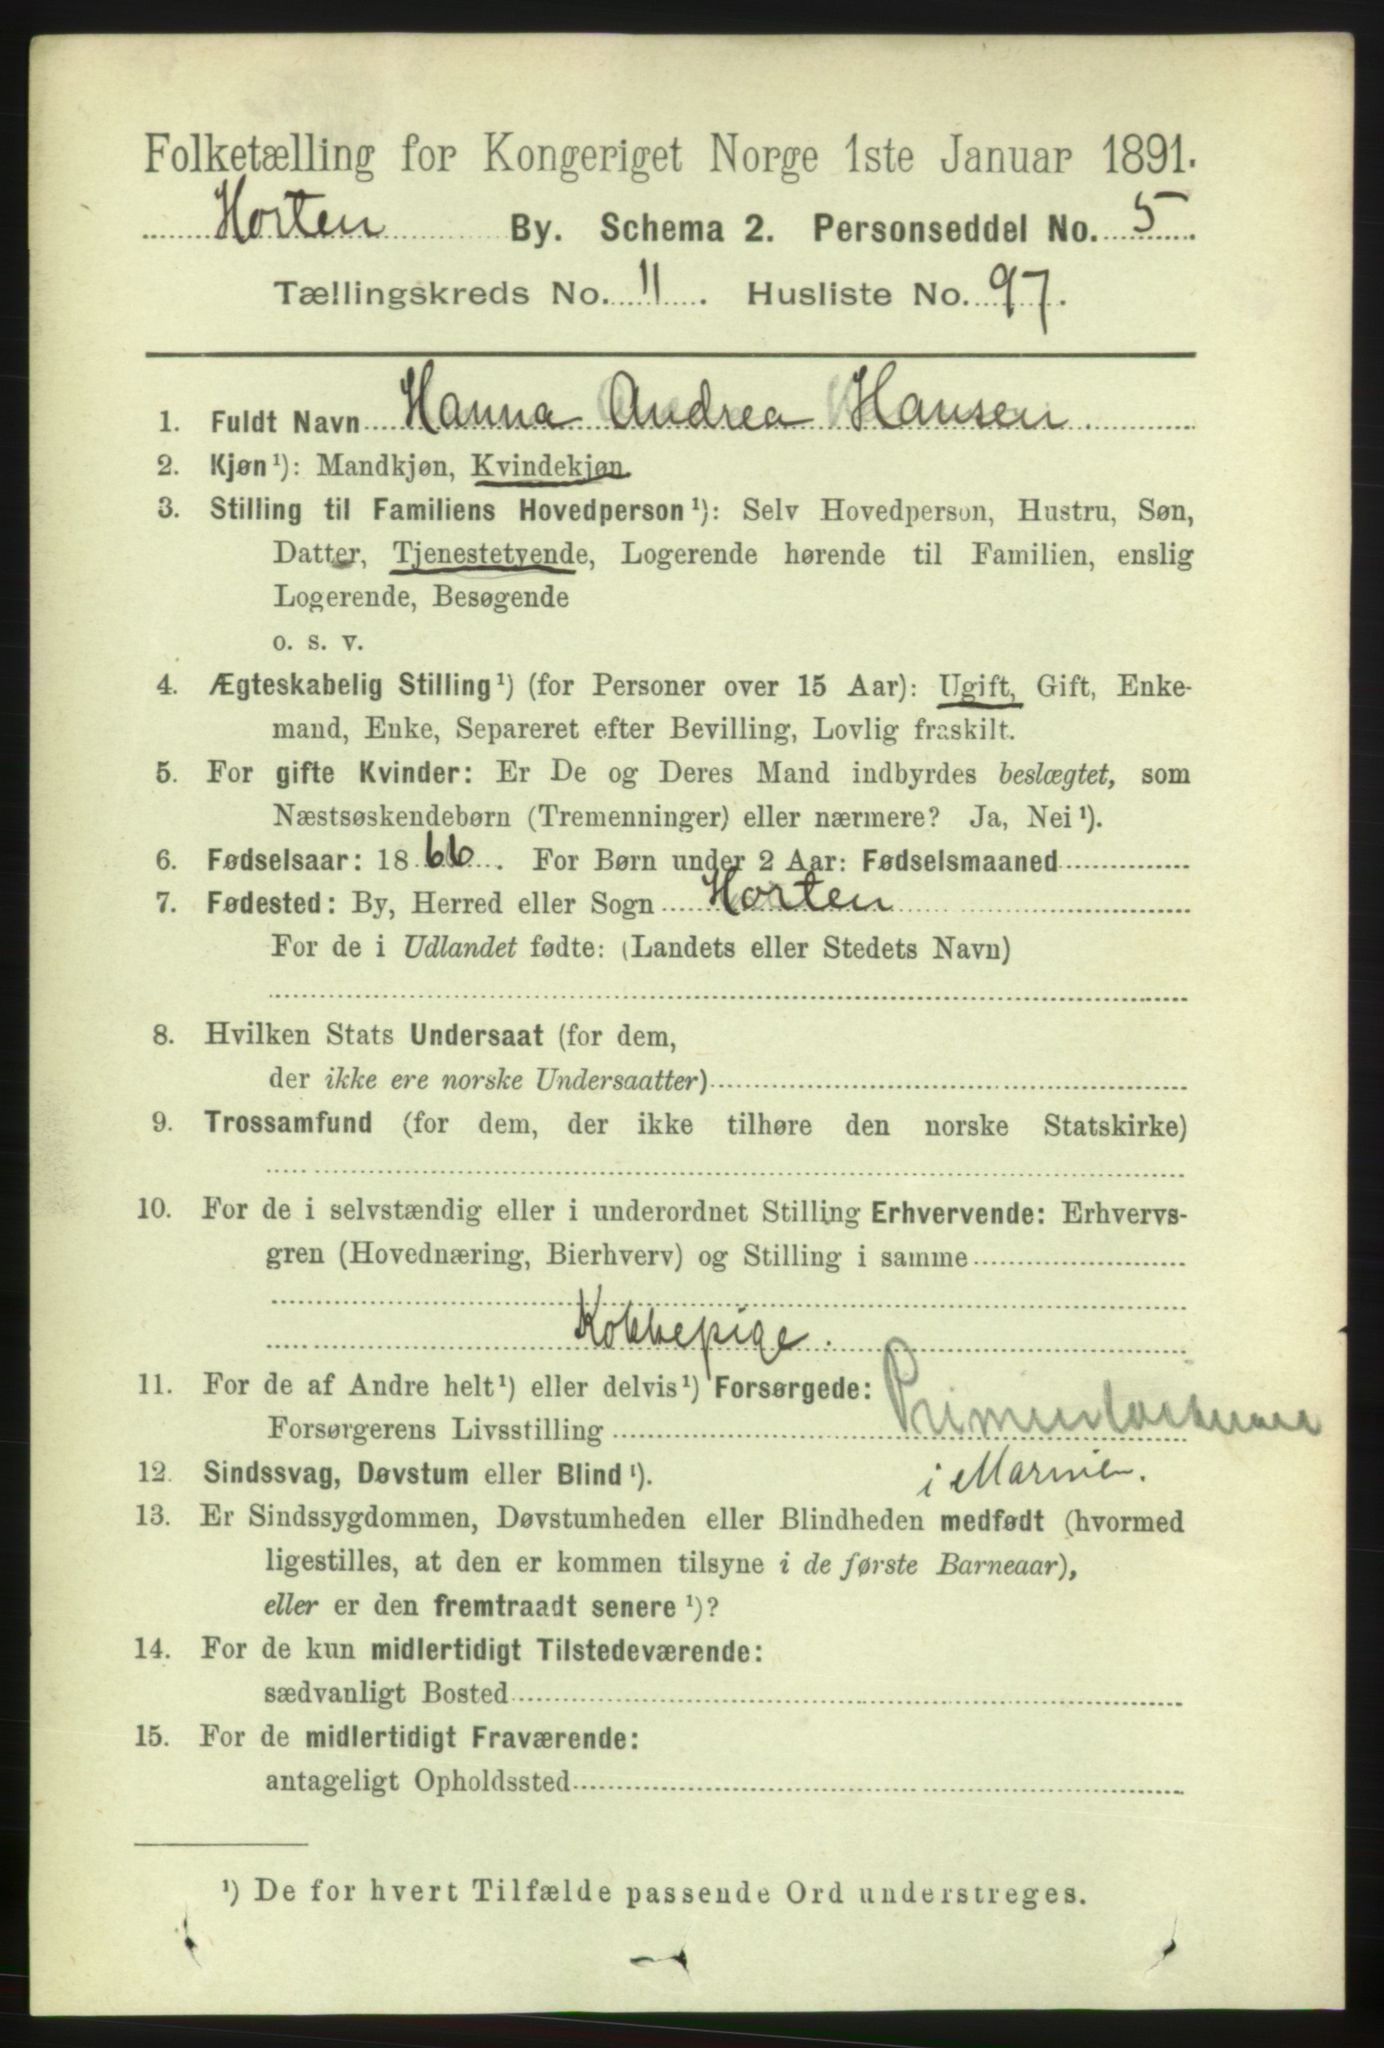 Folketælling for Kongeriget Norge 1ste Januar 1891.
Horten By. Schema 2. Personseddel No. 5
Tællingskreds No. 11. Husliste No. 97.
1. Fuldt Navn Hanna Andrea Hansen
2. Kjøn¹): Mandkjøn, Kvindekjøn.
3. Stilling til Familiens Hovedperson¹): Selv Hovedperson, Hustru, Søn,
Datter, Tjenestetyende, Logerende hørende til Familien, enslig
Logerende, Besøgende
o. s. v.
4. Ægteskabelig Stilling¹) (for Personer over 15 Aar): Ugift, Gift, Enke-
mand, Enke, Separeret efter Bevilling, Lovlig fraskilt.
5. For gifte Kvinder: Er De og Deres Mand indbyrdes beslægtet, som
Næstsøskendebørn (Tremenninger) eller nærmere? Ja, Nei¹).
6. Fødselsaar: 1866. For Børn under 2 Aar: Fødselsmaaned
7. Fødested: By, Herred eller Sogn Horten
For de i Udlandet fødte: (Landets eller Stedets Navn)
8. Hvilken Stats Undersaat (for dem,
der ikke ere norske Undersaatter)
9. Trossamfund (for dem, der ikke tilhøre den norske Statskirke)
10. For de i selvstændig eller i underordnet Stilling Erhvervende: Erhvervs-
gren (Hovednæring, Bierhverv) og Stilling i samme
Kokkepige.
11. For de af Andre helt¹) eller delvis¹) Forsørgede:
Forsørgerens Livsstilling
i Marine.
12. Sindssvag, Døvstum eller Blind¹).
13. Er Sindssygdommen, Døvstumheden eller Blindheden medfødt (hvormed
ligestilles, at den er kommen tilsyne i de første Barneaar),
eller er den fremtraadt senere¹)?
14. For de kun midlertidigt Tilstedeværende:
sædvanligt Bosted
15. For de midlertidigt Fraværende:
antageligt Opholdssted
¹) De for hvert Tilfælde passende Ord understreges.